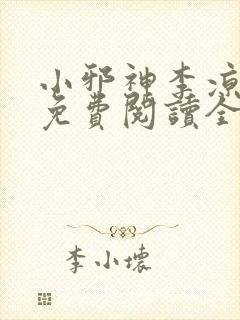 小邪神李凉
免費閱讀全
李小壞